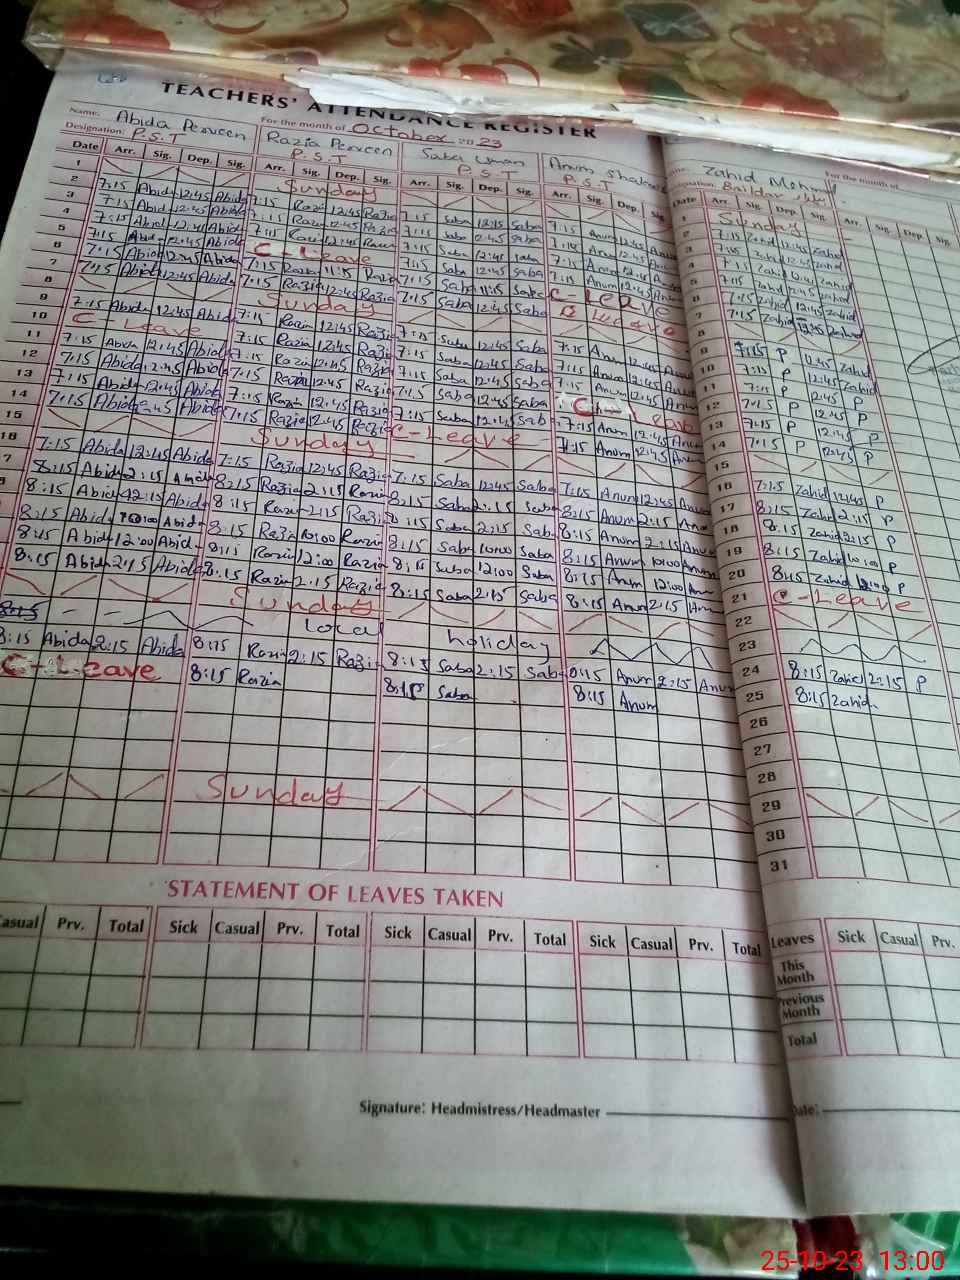 TEACHERS' ATTENDANCE REGISTER
Name: Abida Perveen For the month of October 2023
Designation: P.S.T Razia Perveen P.S.T Saba Usman P.S.T Anum P.S.T Zahid For the month of
Date Arr. Sig. Dep. Sig. Arr. Sig. Dep. Sig. Arr. Sig. Dep. Sig. Date Arr. Sig. Dep. Sig. Arr. Sig. Dep. Sig.
1 Sunday 1 Sunday
2 7:15 Abida 12:45 Abida 7:15 Razia 12:45 Razia 7:15 Saba 12:45 Saba 7:15 Anum 12:45 Anum 2 7:15 Zahid 12:45 Zahid
3 7:15 Abida 12:45 Abida 7:15 Razia 12:45 Razia 7:15 Saba 12:45 Saba 7:15 Anum 12:45 Anum 3 7:15 Zahid 12:45 Zahid
4 7:15 Abida 12:45 Abida 7:15 Razia 12:45 Razia 7:15 Saba 12:45 Saba 7:15 Anum 12:45 Anum 4 7:15 Zahid 12:45 Zahid
5 7:15 Abida 12:45 Abida C-Leave 7:15 Saba 12:45 Saba 7:15 Anum 12:45 Anum 5 7:15 Zahid 12:45 Zahid
6 7:15 Abida Abida 7:15 Razia 11:15 Razia 7:15 Saba 11:15 Saba C-Leave 6 7:15 Zahid Zahid
7 7:15 Abida 12:45 Abida 7:15 Razia 12:45 Razia 7:15 Saba 12:45 Saba Leave 7 7:15 Zahid 12:45 Zahid
8 Sunday 8
9 7:15 Abida 12:45 Abida 7:15 Razia 12:45 Razia 7:15 Saba 12:45 Saba 7:15 Anum 12:45 Anum 9 7:15 P 12:45 Zahid
10 C-Leave 7:15 Razia 12:45 Razia 7:15 Saba 12:45 Saba 7:15 Anum 12:45 Anum 10 7:15 P 12:45 Zahid
11 7:15 Abida 12:45 Abida 7:15 Razia 12:45 Razia 7:15 Saba 12:45 Saba 7:15 Anum 12:45 Anum 11 7:15 P 12:45 P
12 7:15 Abida 12:45 Abida 7:15 Razia 12:45 Razia 7:15 Saba 12:45 Saba C-Leave 12 7:15 P 12:45 P
13 7:15 Abida 12:45 Abida 7:15 Razia 12:45 Razia 7:15 Saba 12:45 Saba 7:15 Anum 12:45 Anum 13 7:15 P 12:45 P
14 7:15 Abida Abida 7:15 Razia 12:45 Razia C-Leave 7:15 Anum 12:45 Anum 14 7:15 P 12:45 P
15 Sunday 15
16 7:15 Abida 12:45 Abida 7:15 Razia 12:45 Razia 7:15 Saba 12:45 Saba 7:15 Anum 12:45 Anum 16 7:15 Zahid 12:45 P
8:15 Abida 2:15 8:15 Razia 2:15 Razia 8:15 Saba 2:15 Saba 8:15 Anum 2:15 17 8:15 Zahid 2:15 P
8:15 Abida 2:15 Abida 8:15 Razia 2:15 Razia 8:15 Saba 2:15 Saba 8:15 Anum 2:15 Anum 18 8:15 Zahid 2:15 P
8:15 Abida 10:00 Abida 8:15 Razia 10:00 Razia 8:15 Saba 10:00 Saba 8:15 Anum 10:00 Anum 19 8:15 Zahid 10:00 P
8:15 Abida 12:00 Abida 8:15 Razia 12:00 Razia 8:15 Saba 12:00 Saba 8:15 Anum 12:00 20 8:15 Zahid P
8:15 Abida 2:15 Abida 8:15 Razia 2:15 Razia 8:15 Saba 2:15 Saba 8:15 Anum 2:15 21 C-Leave
Sunday 22
Local holiday 23
8:15 Abida 2:15 Abida 8:15 Razia 2:15 Razia 8:15 Saba 2:15 Saba 8:15 Anum 2:15 Anum 24 8:15 Zahid 2:15 P
C-Leave 8:15 Razia 8:15 Saba 8:15 Anum 25 8:15 Zahid
26
27
28
Sunday 29
30
31
STATEMENT OF LEAVES TAKEN
Casual Prv. Total Sick Casual Prv. Total Sick Casual Prv. Total Sick Casual Prv. Total Leaves Sick Casual Prv.
This Month
Previous Month
Total
Signature: Headmistress/Headmaster Date:
25-10-23 13:00